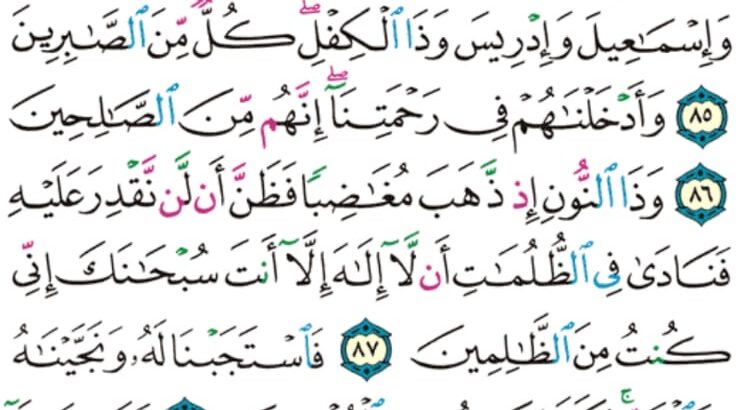 وَإِسْمَاعِيلَ وَإِدْرِيسَ وَذَا الْكِفْلِ ۖ كُلٌّ مِّنَ الصَّابِرِينَ
﴿٨٥﴾ وَأَدْخَلْنَاهُمْ فِي رَحْمَتِنَا ۖ إِنَّهُم مِّنَ الصَّالِحِينَ
﴿٨٦﴾ وَذَا النُّونِ إِذ ذَّهَبَ مُغَاضِبًا فَظَنَّ أَن لَّن نَّقْدِرَ عَلَيْهِ
فَنَادَىٰ فِي الظُّلُمَاتِ أَن لَّا إِلَٰهَ إِلَّا أَنتَ سُبْحَانَكَ إِنِّي
كُنتُ مِنَ الظَّالِمِينَ ﴿٨٧﴾ فَاسْتَجَبْنَا لَهُ وَنَجَّيْنَاهُ